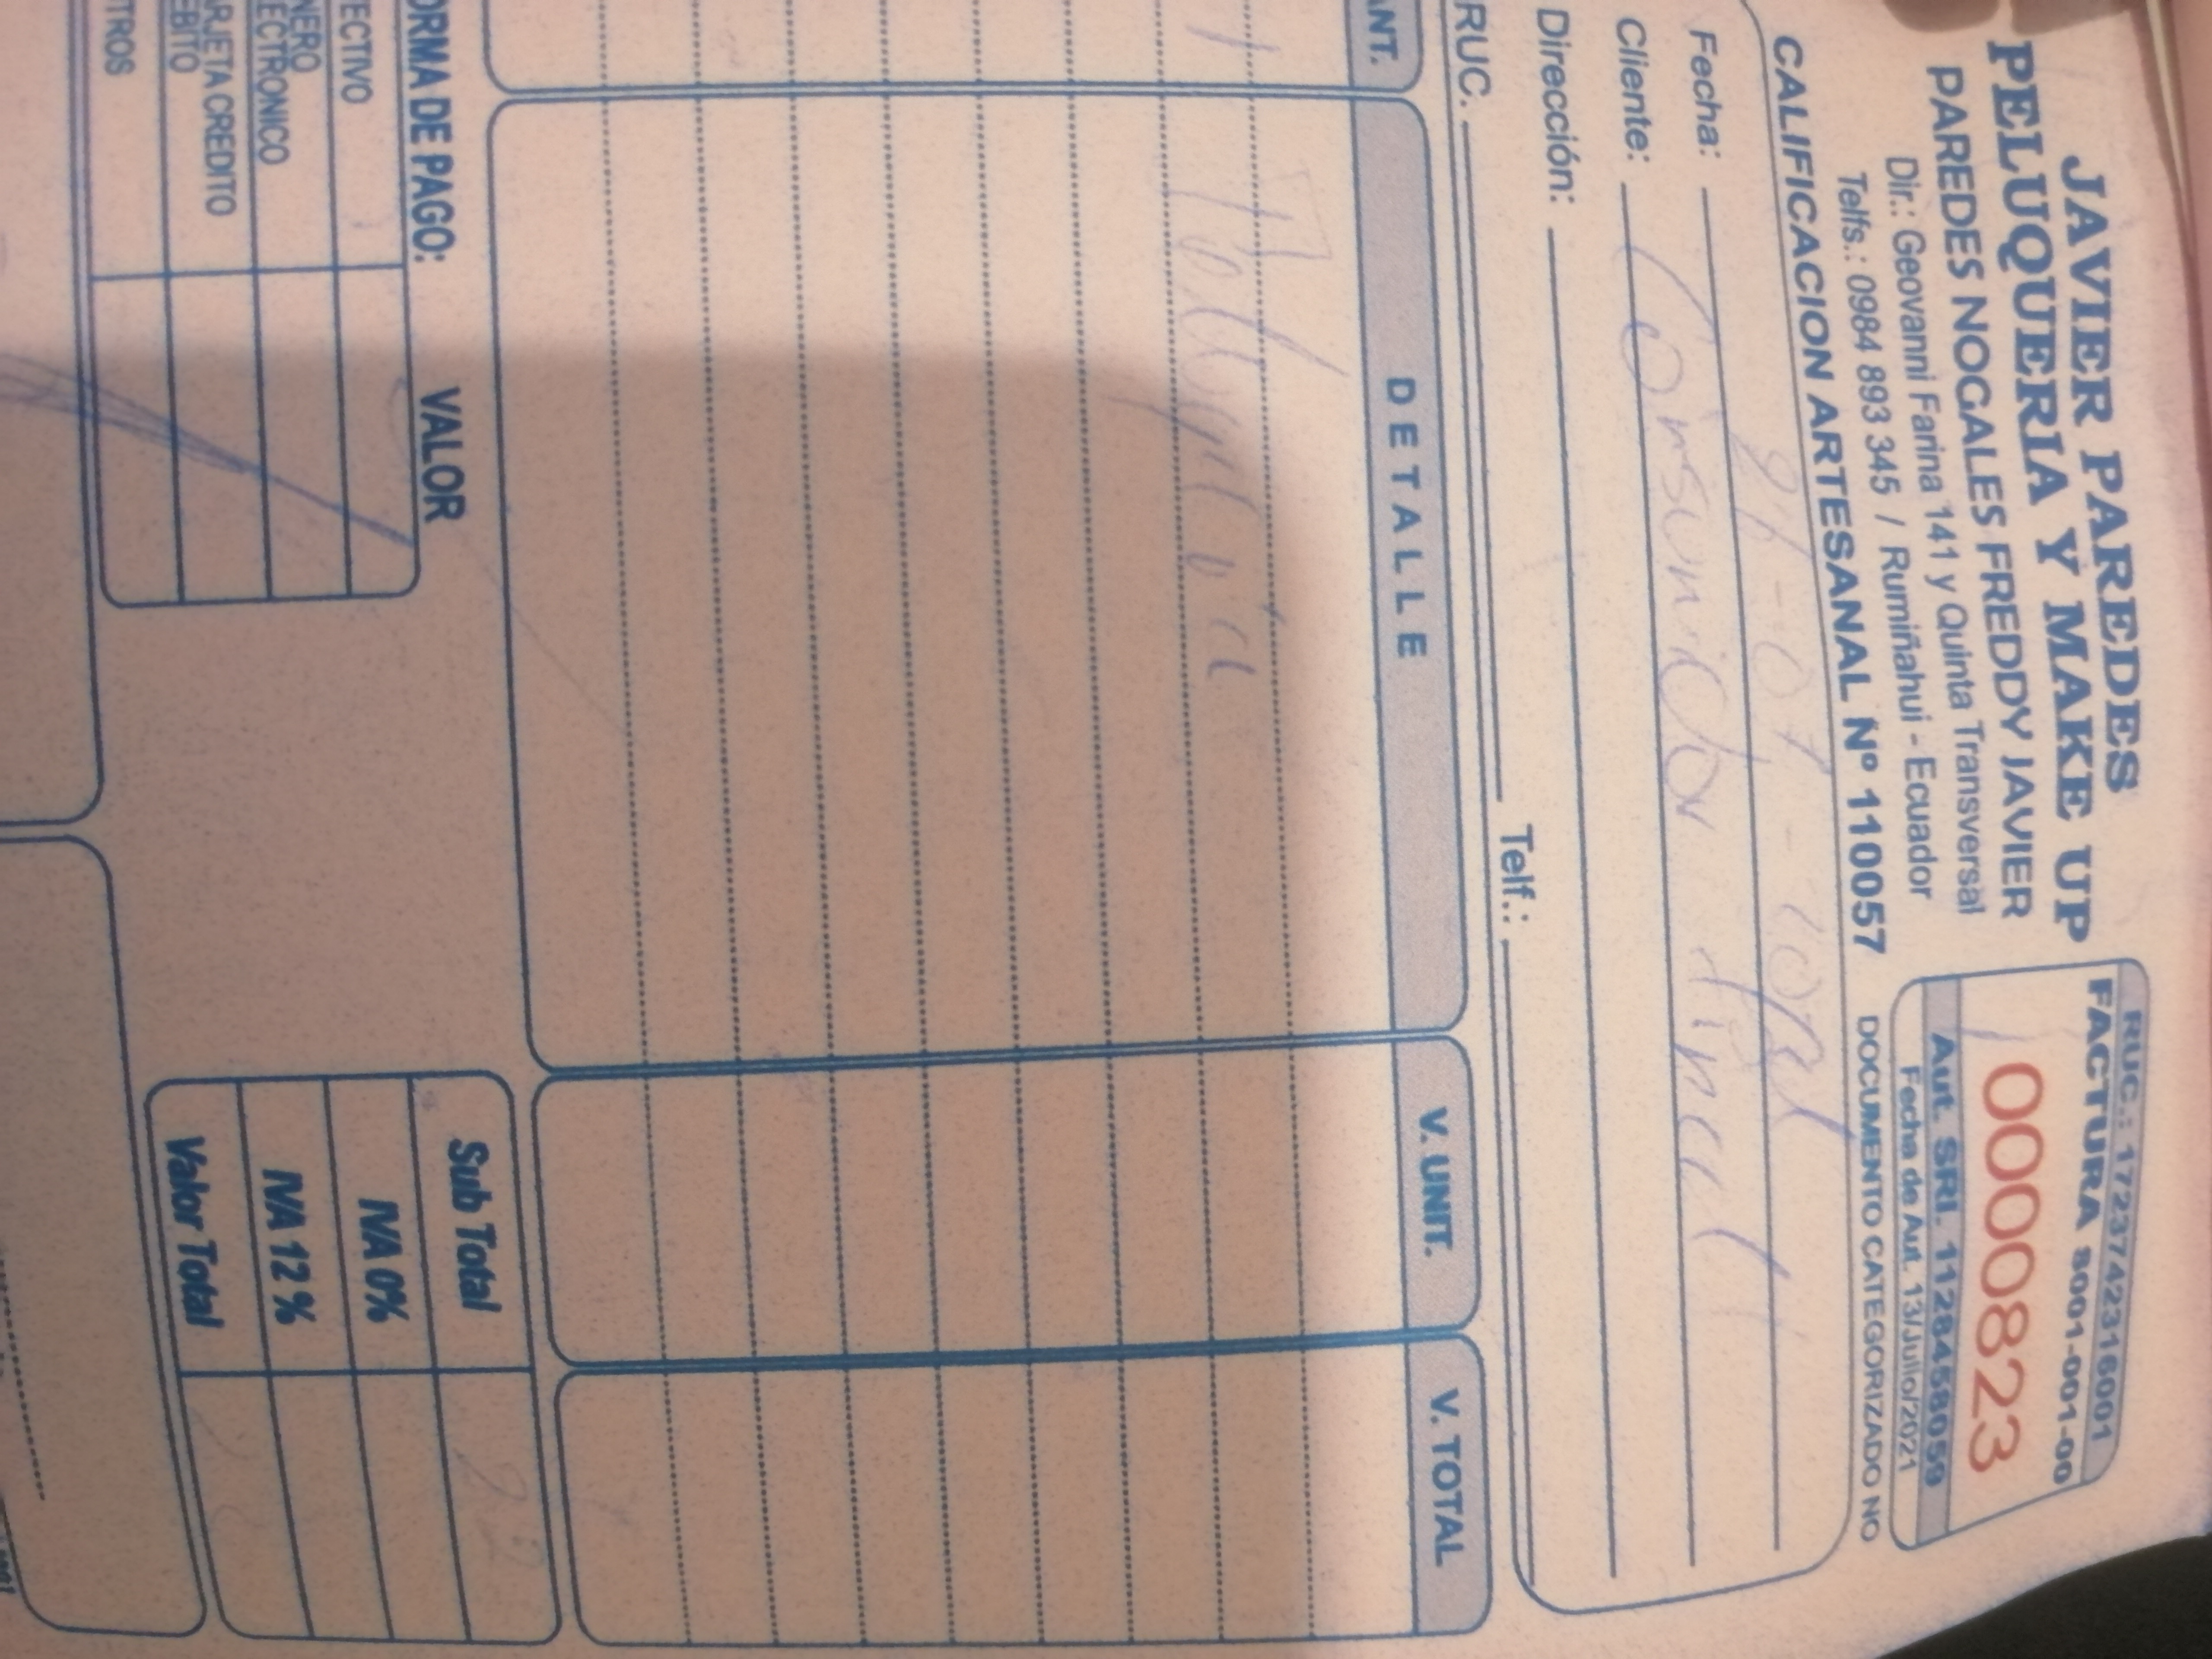 JAVIER PAREDES
PELUQUERIA Y MAKE UP
PAREDES NOGALES FREDDY JAVIER
Dir.: Geovanni Farina 141 y Quinta Transversal
Telfs.: 0984 893 345 / Rumiñahui - Ecuador
CALIFICACION ARTESANAL Nº 110057
RUC.: 1723742316001
FACTURA S001-001-00
0000823
Aut. SRI. 1128458059
Fecha de Aut. 13/Julio/2021
DOCUMENTO CATEGORIZADO NO
Fecha:
Cliente: Consumidor final
Dirección:
RUC. Telf.:
ANT. DETALLE V. UNIT. V. TOTAL
1
ORMA DE PAGO: VALOR
ECTIVO
NERO
ECTRONICO
ARJETA CREDITO
EBITO
TROS
Sub Total
IVA 0%
IVA 12 %
Valor Total